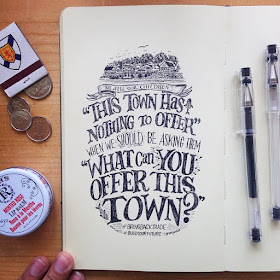 WE TELL OUR CHILDREN
"THIS TOWN HAS
NOTHING TO OFFER"
WHEN WE SHOULD BE ASKING THEM
"WHAT CAN YOU
OFFER THIS
TOWN?"
#BRINGBACKTRADE
LIP BALM